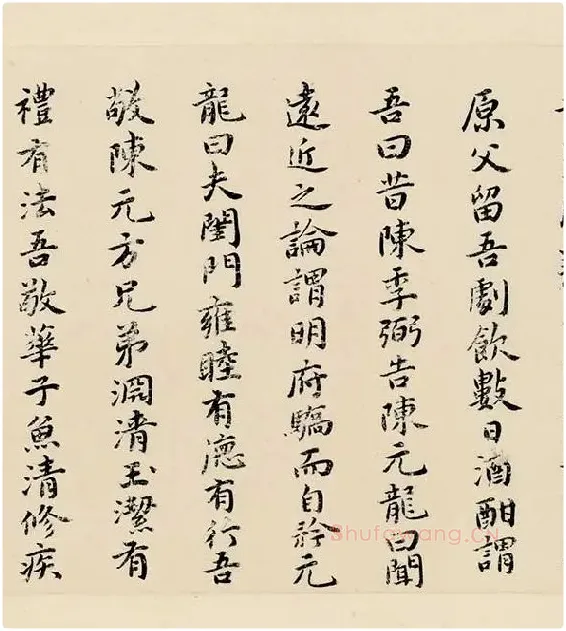 原父留吾劇飲數日酒酣謂
吾曰昔陳季弼告陳元龍曰聞
遠近之論謂明府驕而自矜元
龍曰夫閨門雍睦有德有行吾
敬陳元方兄弟淵清玉潔有
禮有法吾敬華子魚清修疾
Shufawang.CN